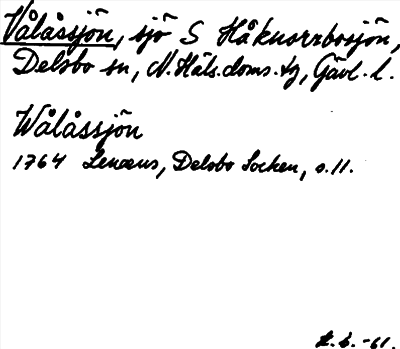 Vålåssjön, sjö S Håknorrbosjön,
Delsbo sn, N. Häls. doms. tg, Gävl. l.
Wålåssjön
1764 Lenæus, Delsbo Socken, s. 11.
E. b. -61.